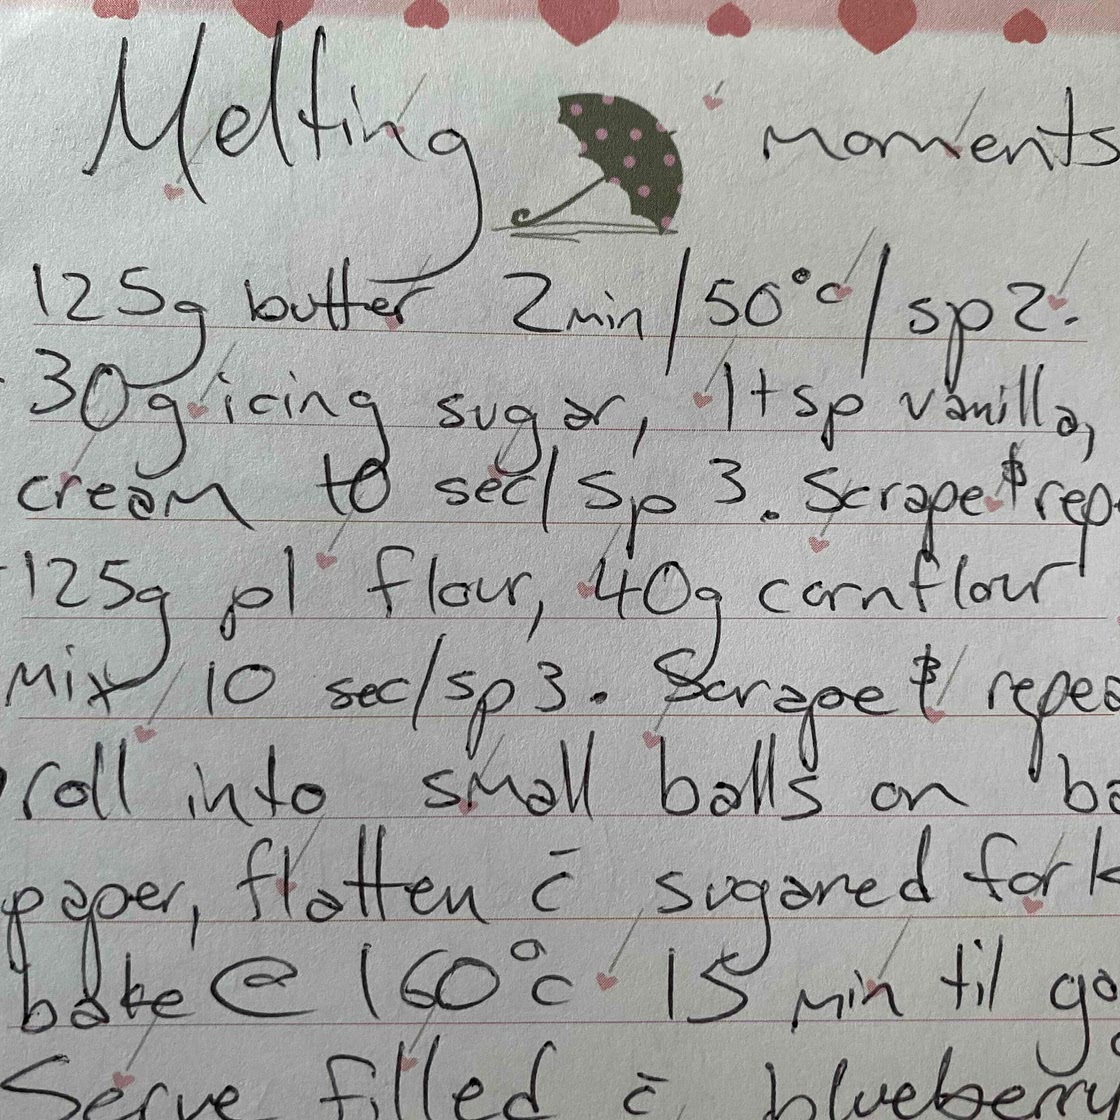 Melting moments
125g butter 2min/50°c/sp2.
30g icing sugar, 1tsp vanilla,
cream 10 sec/sp 3. Scrape & rep
125g pl flour, 40g cornflour
Mix 10 sec/sp3. Scrape & repea
roll into small balls on ba
paper, flatten c̄ sugared fork
bake @ 160°c 15 min til go
Serve filled c̄ blueberry